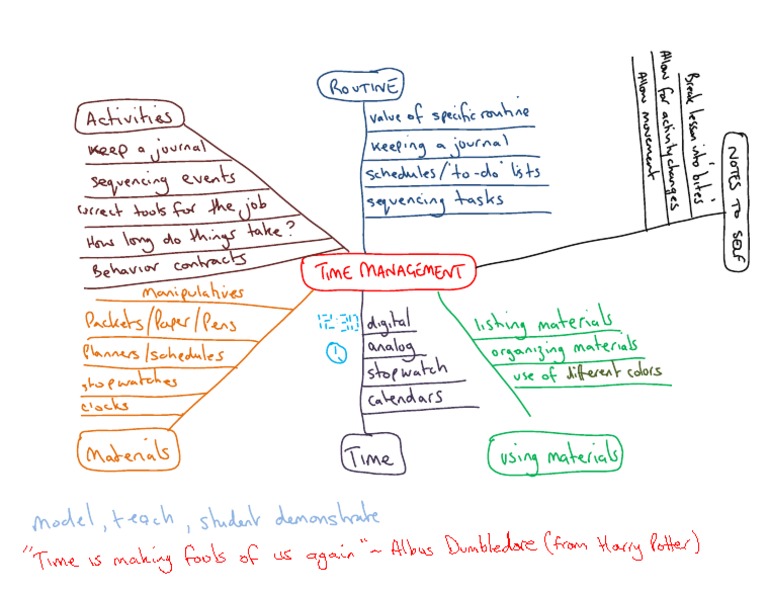 ROUTINE
value of specific routine
keeping a journal
schedules/'to-do' lists
sequencing tasks
Activities
keep a journal
sequencing events
correct tools for the job
How long do things take?
Behavior contracts
NOTES TO SELF
Break lesson into 'bites'
Allow for activity changes
Allow movement
TIME MANAGEMENT
manipulatives
Packets/Paper/Pens
Planners/schedules
stopwatches
clocks
Materials
12:30
digital
analog
stopwatch
calendars
Time
listing materials
organizing materials
use of different colors
using materials
model, teach, student demonstrate
"Time is making fools of us again" ~ Albus Dumbledore (from Harry Potter)